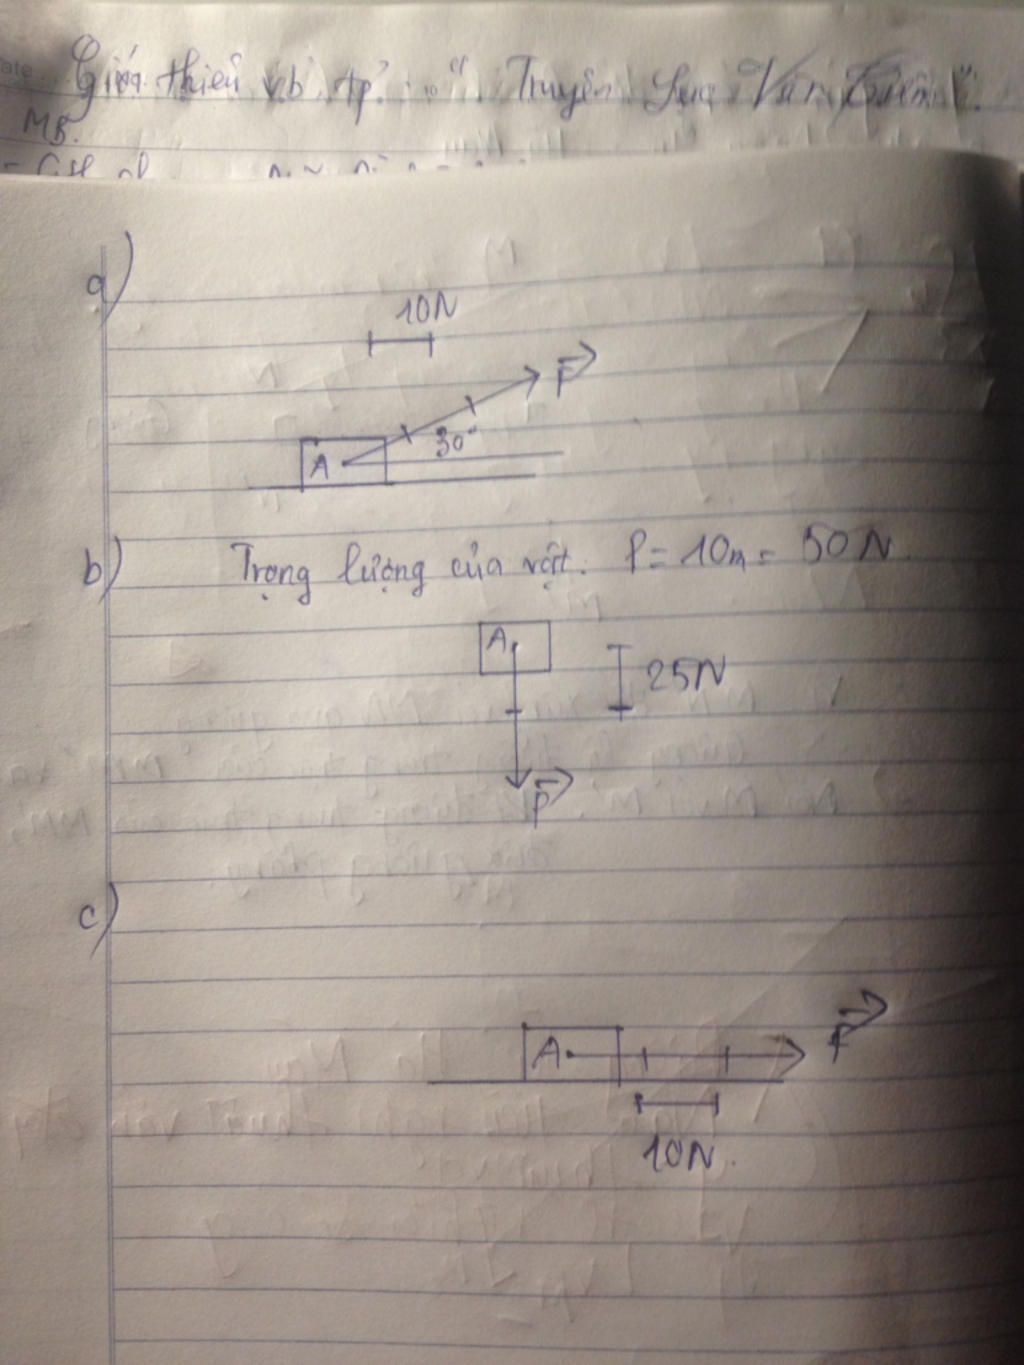 Giới thiệu vb tp: " Truyện Lục Vân Tiên ".
MB.
a)
10N
F
30°
A
b) Trọng lượng của vật: P = 10m = 50N.
A
25N
P
c)
F
A
10N.